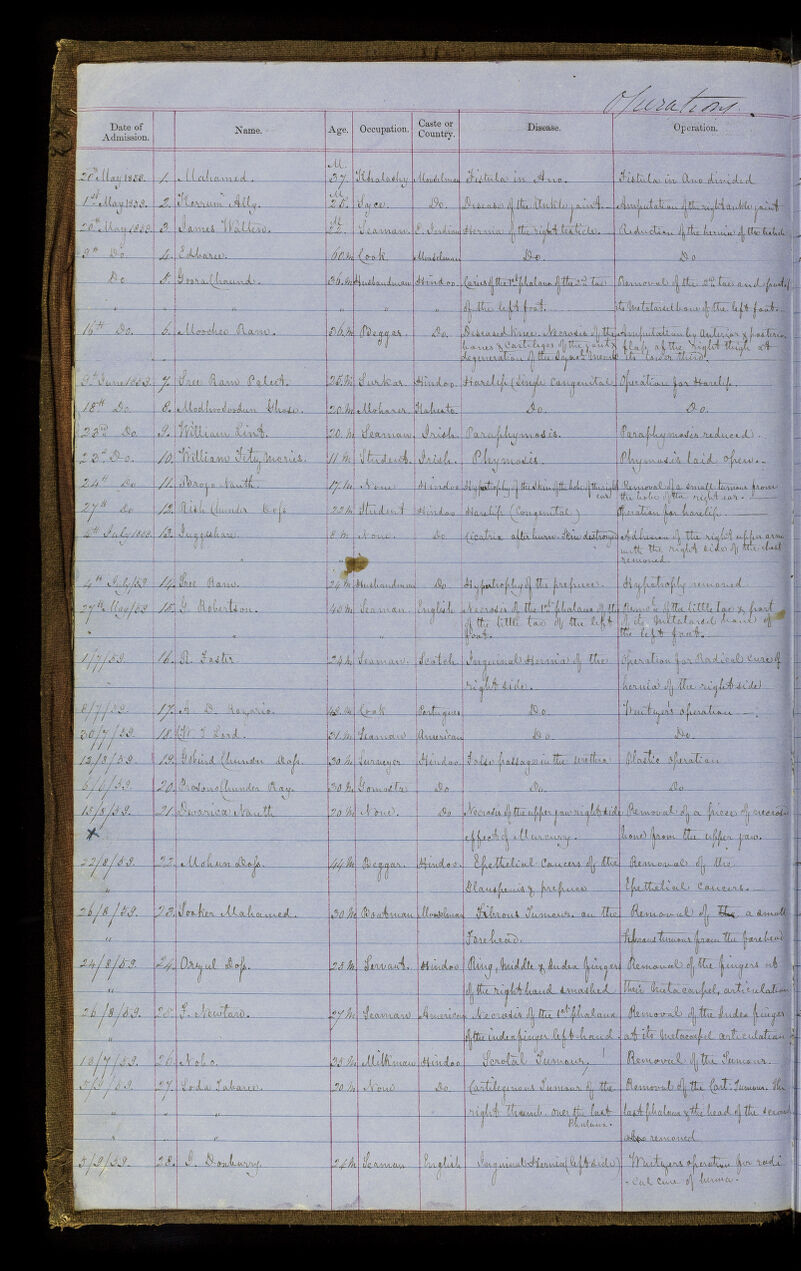 Operations.
Date of Admission. Name. Age. Occupation. Caste or Country. Disease. Operation.
20th May 1859. 1. Mahamed. 37. M. Khalashy Mouselman Fistula in Ano. Fistula in Ano divided
1st May 1859. 2. Korrum Ally. 25. M Syce. Do. Disease of the Ankle joint. Amputation of the right ankle joint
20th May 1859 3. James Walters. 22. M Seaman. E. Indian Hernia of the right testicle. Reduction of the hernia of the testicle
3th Do. 4. Edbaree. 60 M Cook Mouselman Do. Do
Do 5. Goora Chaund. 36. M Husbandman Hindoo. Caries of the 1st phalanx of the 2nd toe Removal of the 2nd toe and part of
" " " " " of the left foot. its metatarsal bone of the left foot.
16th Do. 6. Moochee Ram. 36. M Beggar. Do. Diseased Knee. Necrosis of the Amputation by Anterior & posterior
bones & cartileges of the joint & flap of the right thigh at
degeneration of the Synovl. Memb. its lower third.
9th June 1859. 7. Sree Ram Paleet. 25. M Surkar. Hindoo Harelip (Single Congenital Operation for Harelip.
18th Do 8. Modhoosoodun Ghose. 20. M Moharer. Do. Do.
23rd Do 9. William Lint. 20. M Seaman. Irish. Paraphymosis. Paraphymosis reduced.
23d Do. 10. William Fitz Morris. 11 M Student. Irish. Phymosis. Phymosis laid open.
24th Do 11. Brojo Nauth. 17. M None Hindoo Hypatrophy of the skin of the hole of the right ear Removal of a small tumour from
the hole of the right ear.
27th Do 12. Rish Chunder Doss 22 M Student Hindoo Harelip (Congenital) Operation for harelip.
July 1859. 13. Juggeshare. 8 M None. Do Cicatrix after burn. Skin destroyed Adhesion of the right upper arm
with the right side of the chest
removed.
4th July/59 14. Sree Ram. 24 M Husbandman Do Hypatrophy of the prepuce. Hypatrophy removed
27th May/59 15. G. Robertson. 40 M Seaman English Necrosis of the 1st phalanx of the Removl. of the little toe & part
" " of the little toe of the left of its metatarsl bone of
foot. the left foot.
1/7/59. 16. R. Foster 24 M Seaman. Scotch. Inguinal Hernia of the Operation for Radical cure of
right side. hernia of the right side
8/7/59. 17. A. D. Rozario. M Cook Portuguese Do. Wutzer's operation
30/7/59. 18. W. T. Lord. 31. M Seaman American Do. Do.
12/8/59. 19. Gobind Chunder Doss. 30 M Surveyor Hindoo. False passage in the urethra Plastic operation
20. Prosono Chunder Ray. 30 M Gomosta Do. Do. Do
15/8/59. 21. Dwarica Nauth 20 M None. Do Necrosis of the upper jaw right side Removal of a piece of necrosed
x effect of Mercury. bone from the upper jaw.
22/8/59. 22. Mohun Doss. 44 M Beggar. Hindoo. Epethelial Cancers of the Removal of the
" Glanspenis & prepuce Epethelial cancers.
26/8/59. 23. Sooker Mahamed. 30 M Boatman Mouselman Fibrous Tumour on the Removal of a small
" Forehead. fibrous tumour from the forehead
24/8/59. 24. Doss. 25 M Servant. Hindoo Ring, Middle & Index fingers Removal of the fingers at
" of the right hand smashed their metacarpel, articulation
26/8/59. 25. G. Newtown. 27 M Seaman American Necrosis of the 1st phalanx Removal of the Index finger
" of the index finger left hand. at its metacarpel articulation
18/7/59. 26. Nobo. 25 M Milkman Hindoo Scrotal Tumour. Removal of the Tumour.
5/9/59. 27. Loda Tabaree. 20 M None Do. Cartilegenous Tumour of the Removal of the Cart: Tumour. The
" " " right thumb over the last phalanx. last phalanx & the head of the second
" " " also removed
5/9/59. 28. Donburry. 24 M Seaman English Inguinal Hernia (left side) Wutzers operation for radi
-cal cure of hernia.